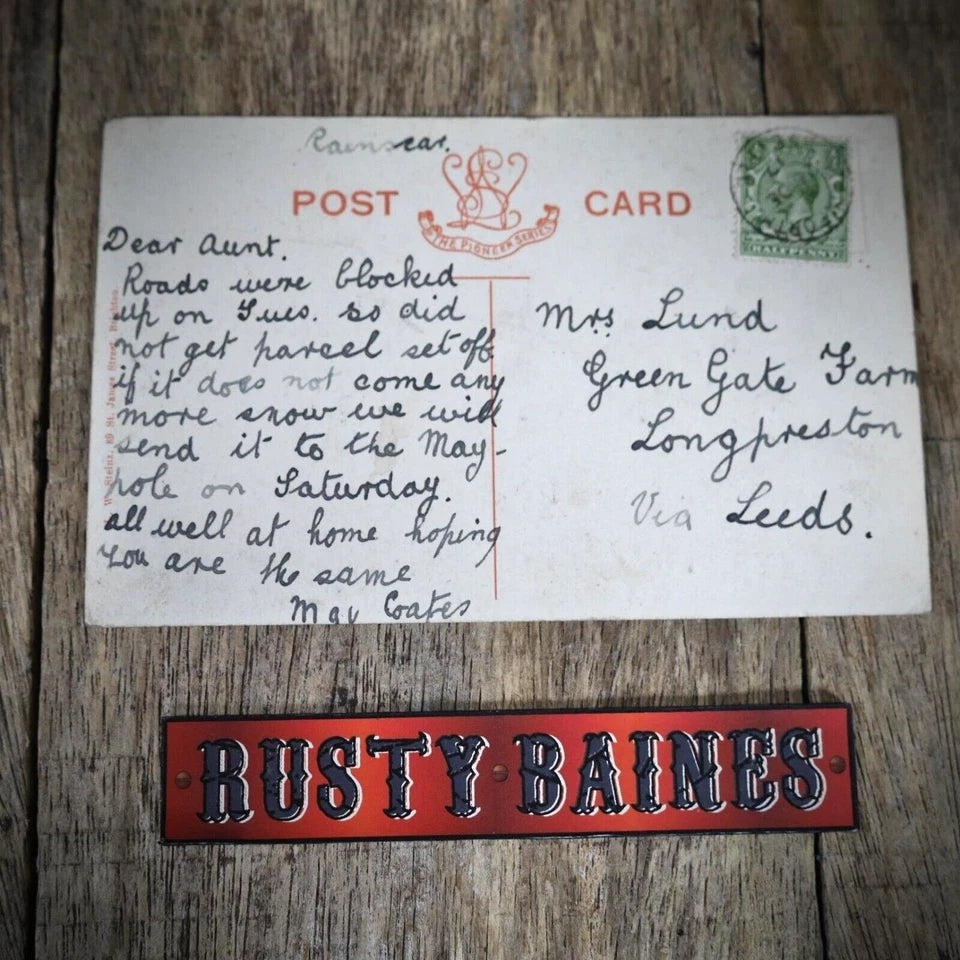 Rainscar.
POST CARD
THE PIONEER SERIES
HALFPENNY
Dear Aunt.
Roads were blocked
up on Tues. so did
not get parcel set off
if it does not come any
more snow we will
send it to the May-
pole on Saturday.
all well at home hoping
you are the same
May Coates
Mrs Lund
Green Gate Farm
Longpreston
Via Leeds.
W. Steinz, 89 St. James Street, Brighton.
RUSTY BAINES